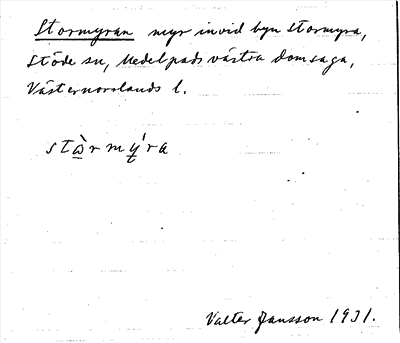 Stormyran myr invid byn Stormyra,
Stöde sn, Medelpads västra domsaga,
Västernorrlands l.
stὼrmý̱ra
Valter Jansson 1931.